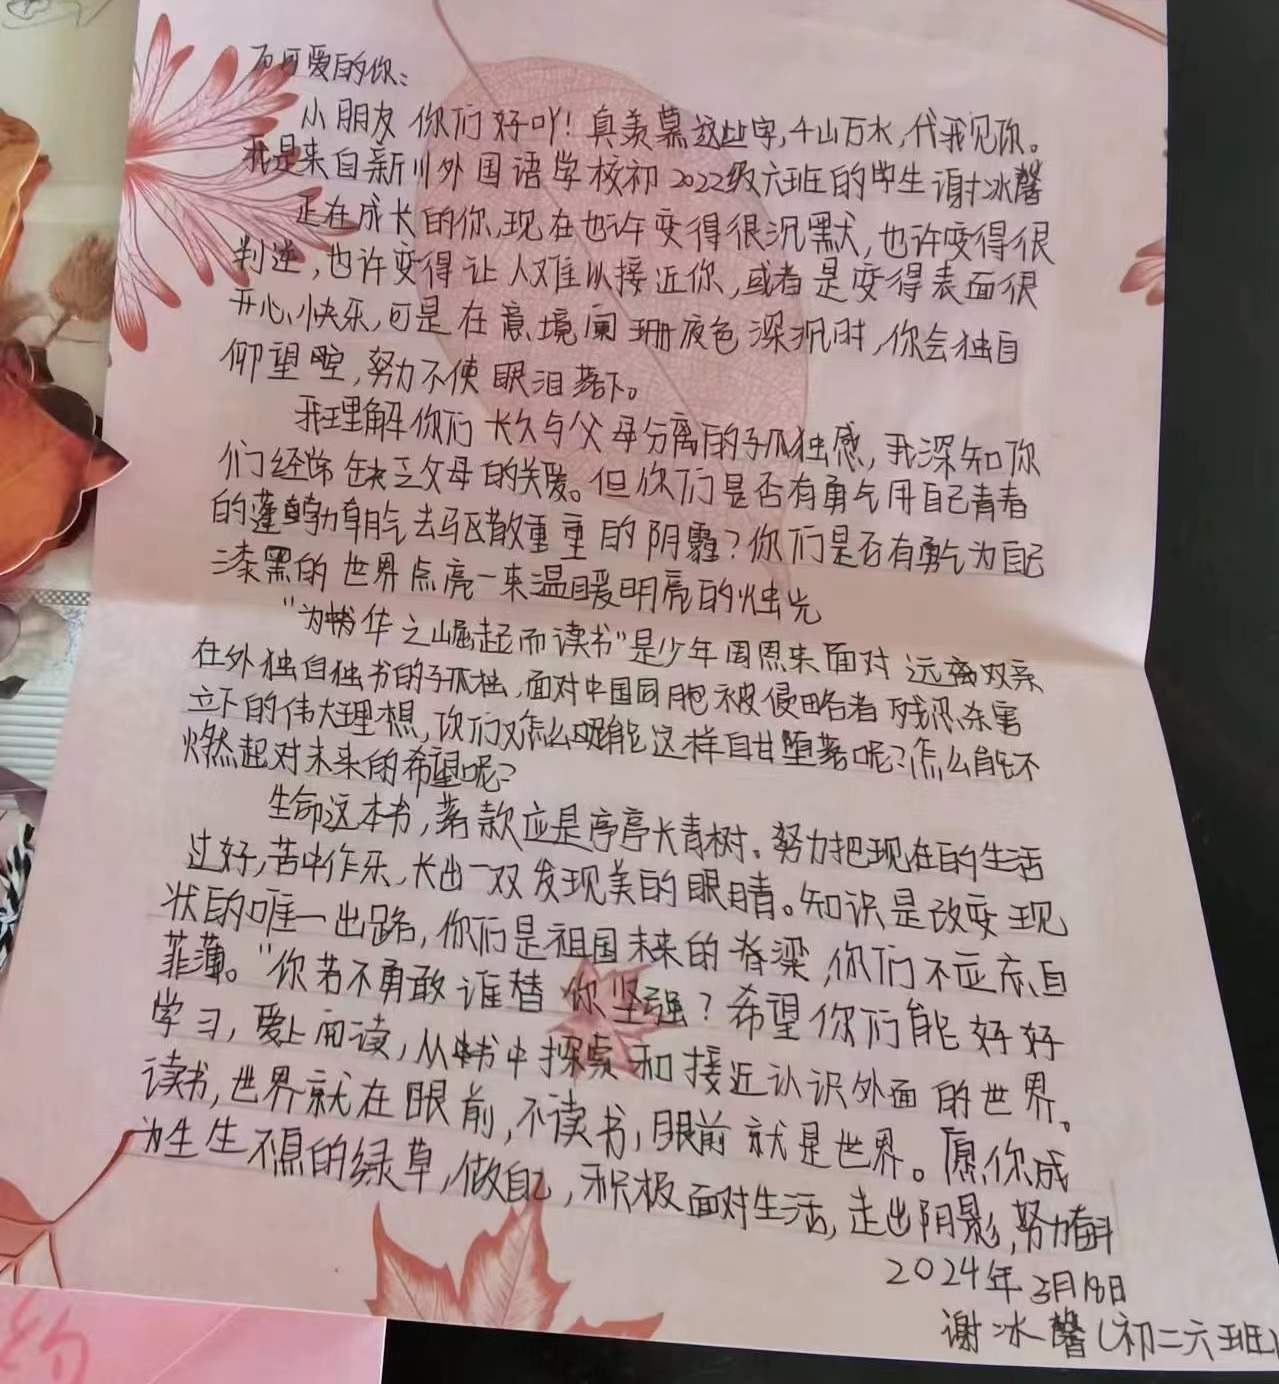 可爱的你：
小朋友 你们好吖！真羡慕这些字，千山万水，代我见你。
我是来自新川外国语学校初2022级六班的学生谢冰馨
正在成长的你，现在也许变得很沉默，也许变得很
判逆，也许变得让人难以接近你，或者是变得表面很
开心、快乐，可是在意境阑珊夜色深沉时，你会独自
仰望空，努力不使眼泪落下。
我理解你们长久与父母分离的孤独感，我深知你
们经常缺乏父母的关爱。但你们是否有勇气用自己青春
的蓬勃朝气去驱散重重的阴霾？你们是否有勇气为自己
漆黑的世界点亮一束温暖明亮的烛光
“为中华之崛起而读书”是少年周恩来面对远离双亲
在外独自独书的孤独，面对中国同胞被侵略者残忍杀害
立下的伟大理想，你们又怎么能这样自甘堕落呢？怎么能不
燃起对未来的希望呢？
生命这本书，落款应是亭亭长青树。努力把现在的生活
过好，苦中作乐，长出一双发现美的眼睛。知识是改变现
状的唯一出路，你们是祖国未来的脊梁，你们不应妄自
菲薄。“你若不勇敢谁替你坚强？希望你们能好好
学习，爱上阅读，从书中探索和接近认识外面的世界。
读书，世界就在眼前，不读书，眼前就是世界。愿你成
为生生不息的绿草，做自己，积极面对生活，走出阴影，努力奋斗
2024年3月18日
谢冰馨（初二六班）